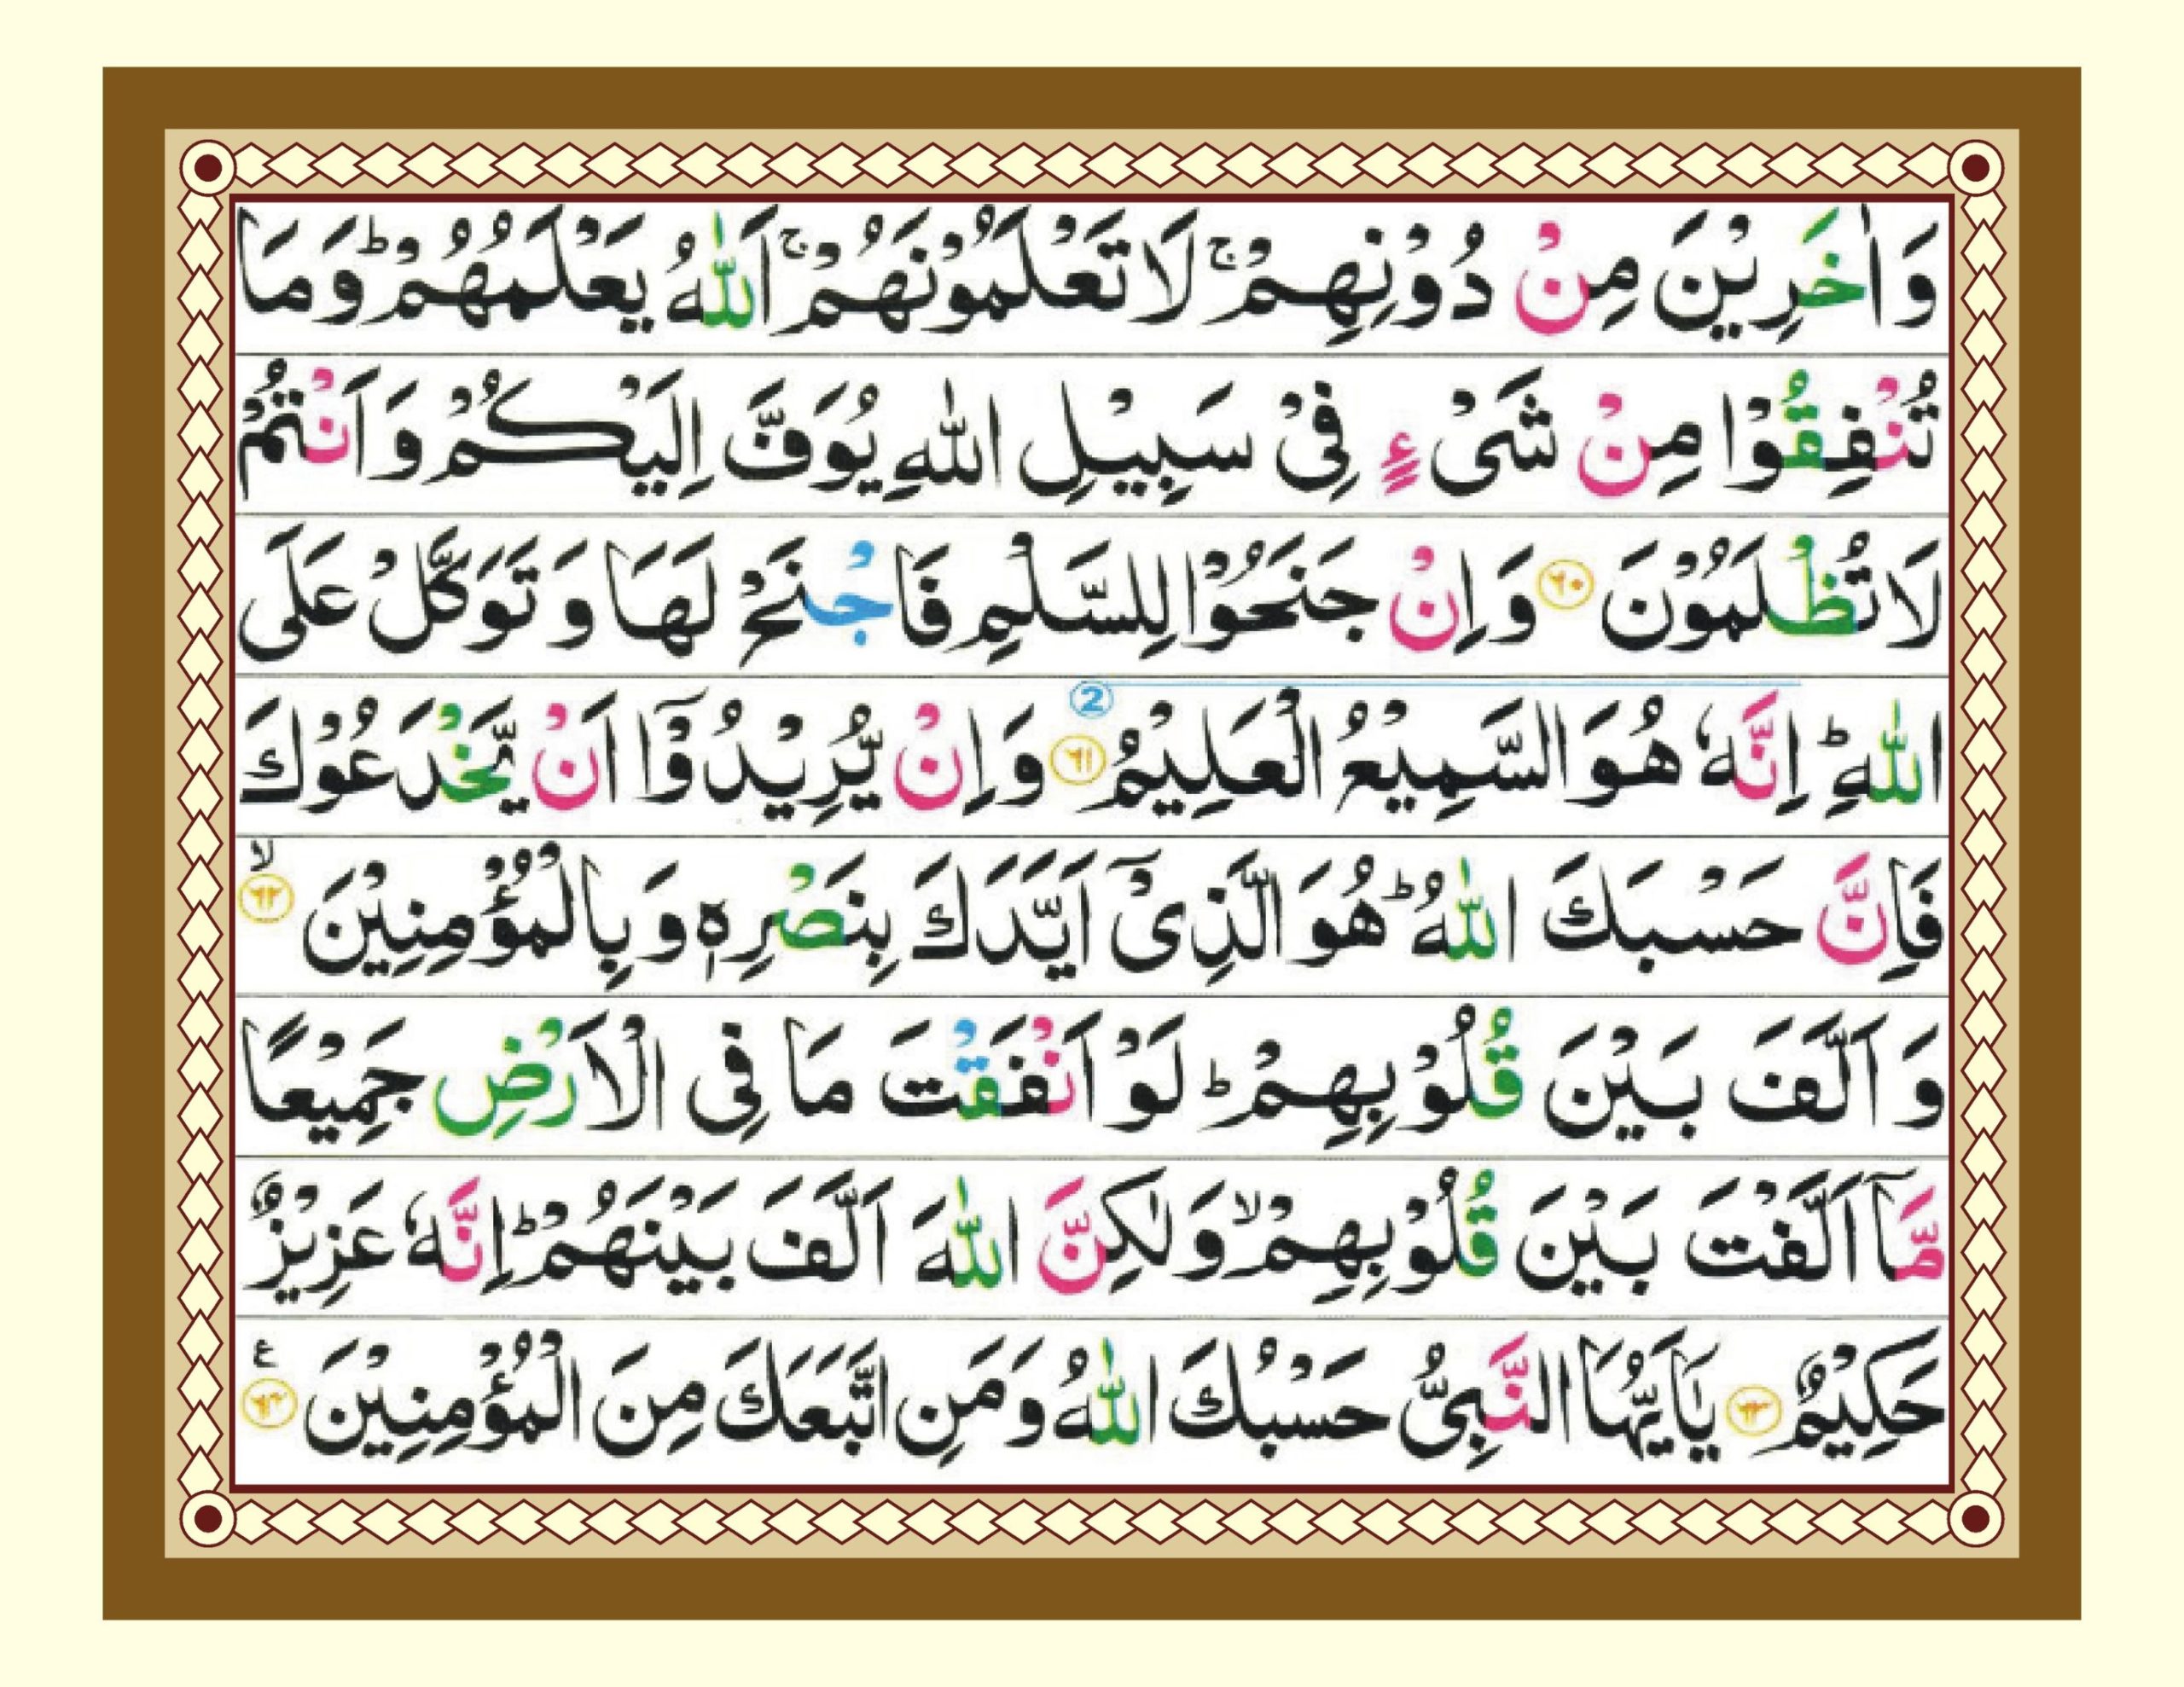 وَاٰخَرِيْنَ مِنْ دُوْنِهِمْ ۚ لَا تَعْلَمُوْنَهُمْ ۚ اَللّٰهُ يَعْلَمُهُمْ ؕ وَمَا
تُنْفِقُوْا مِنْ شَیْءٍ فِیْ سَبِيْلِ اللّٰهِ يُوَفَّ اِلَيْكُمْ وَاَنْتُمْ
لَا تُظْلَمُوْنَ ۶۰ وَاِنْ جَنَحُوْا لِلسَّلْمِ فَاجْنَحْ لَهَا وَتَوَكَّلْ عَلَی
اللّٰهِ ؕ اِنَّهٗ هُوَ السَّمِيْعُ الْعَلِيْمُ ۶۱ 2 وَاِنْ يُّرِيْدُوْۤا اَنْ يَّخْدَعُوْكَ
فَاِنَّ حَسْبَكَ اللّٰهُ ؕ هُوَ الَّذِیْۤ اَيَّدَكَ بِنَصْرِهٖ وَبِالْمُؤْمِنِيْنَ ۙ ۶۲
وَاَلَّفَ بَيْنَ قُلُوْبِهِمْ ؕ لَوْ اَنْفَقْتَ مَا فِی الْاَرْضِ جَمِيْعًا
مَّاۤ اَلَّفْتَ بَيْنَ قُلُوْبِهِمْ ۙ وَلٰكِنَّ اللّٰهَ اَلَّفَ بَيْنَهُمْ ؕ اِنَّهٗ عَزِيْزٌ
حَكِيْمٌ ۶۳ يٰۤاَيُّهَا النَّبِیُّ حَسْبُكَ اللّٰهُ وَمَنِ اتَّبَعَكَ مِنَ الْمُؤْمِنِيْنَ ۶۴ ع